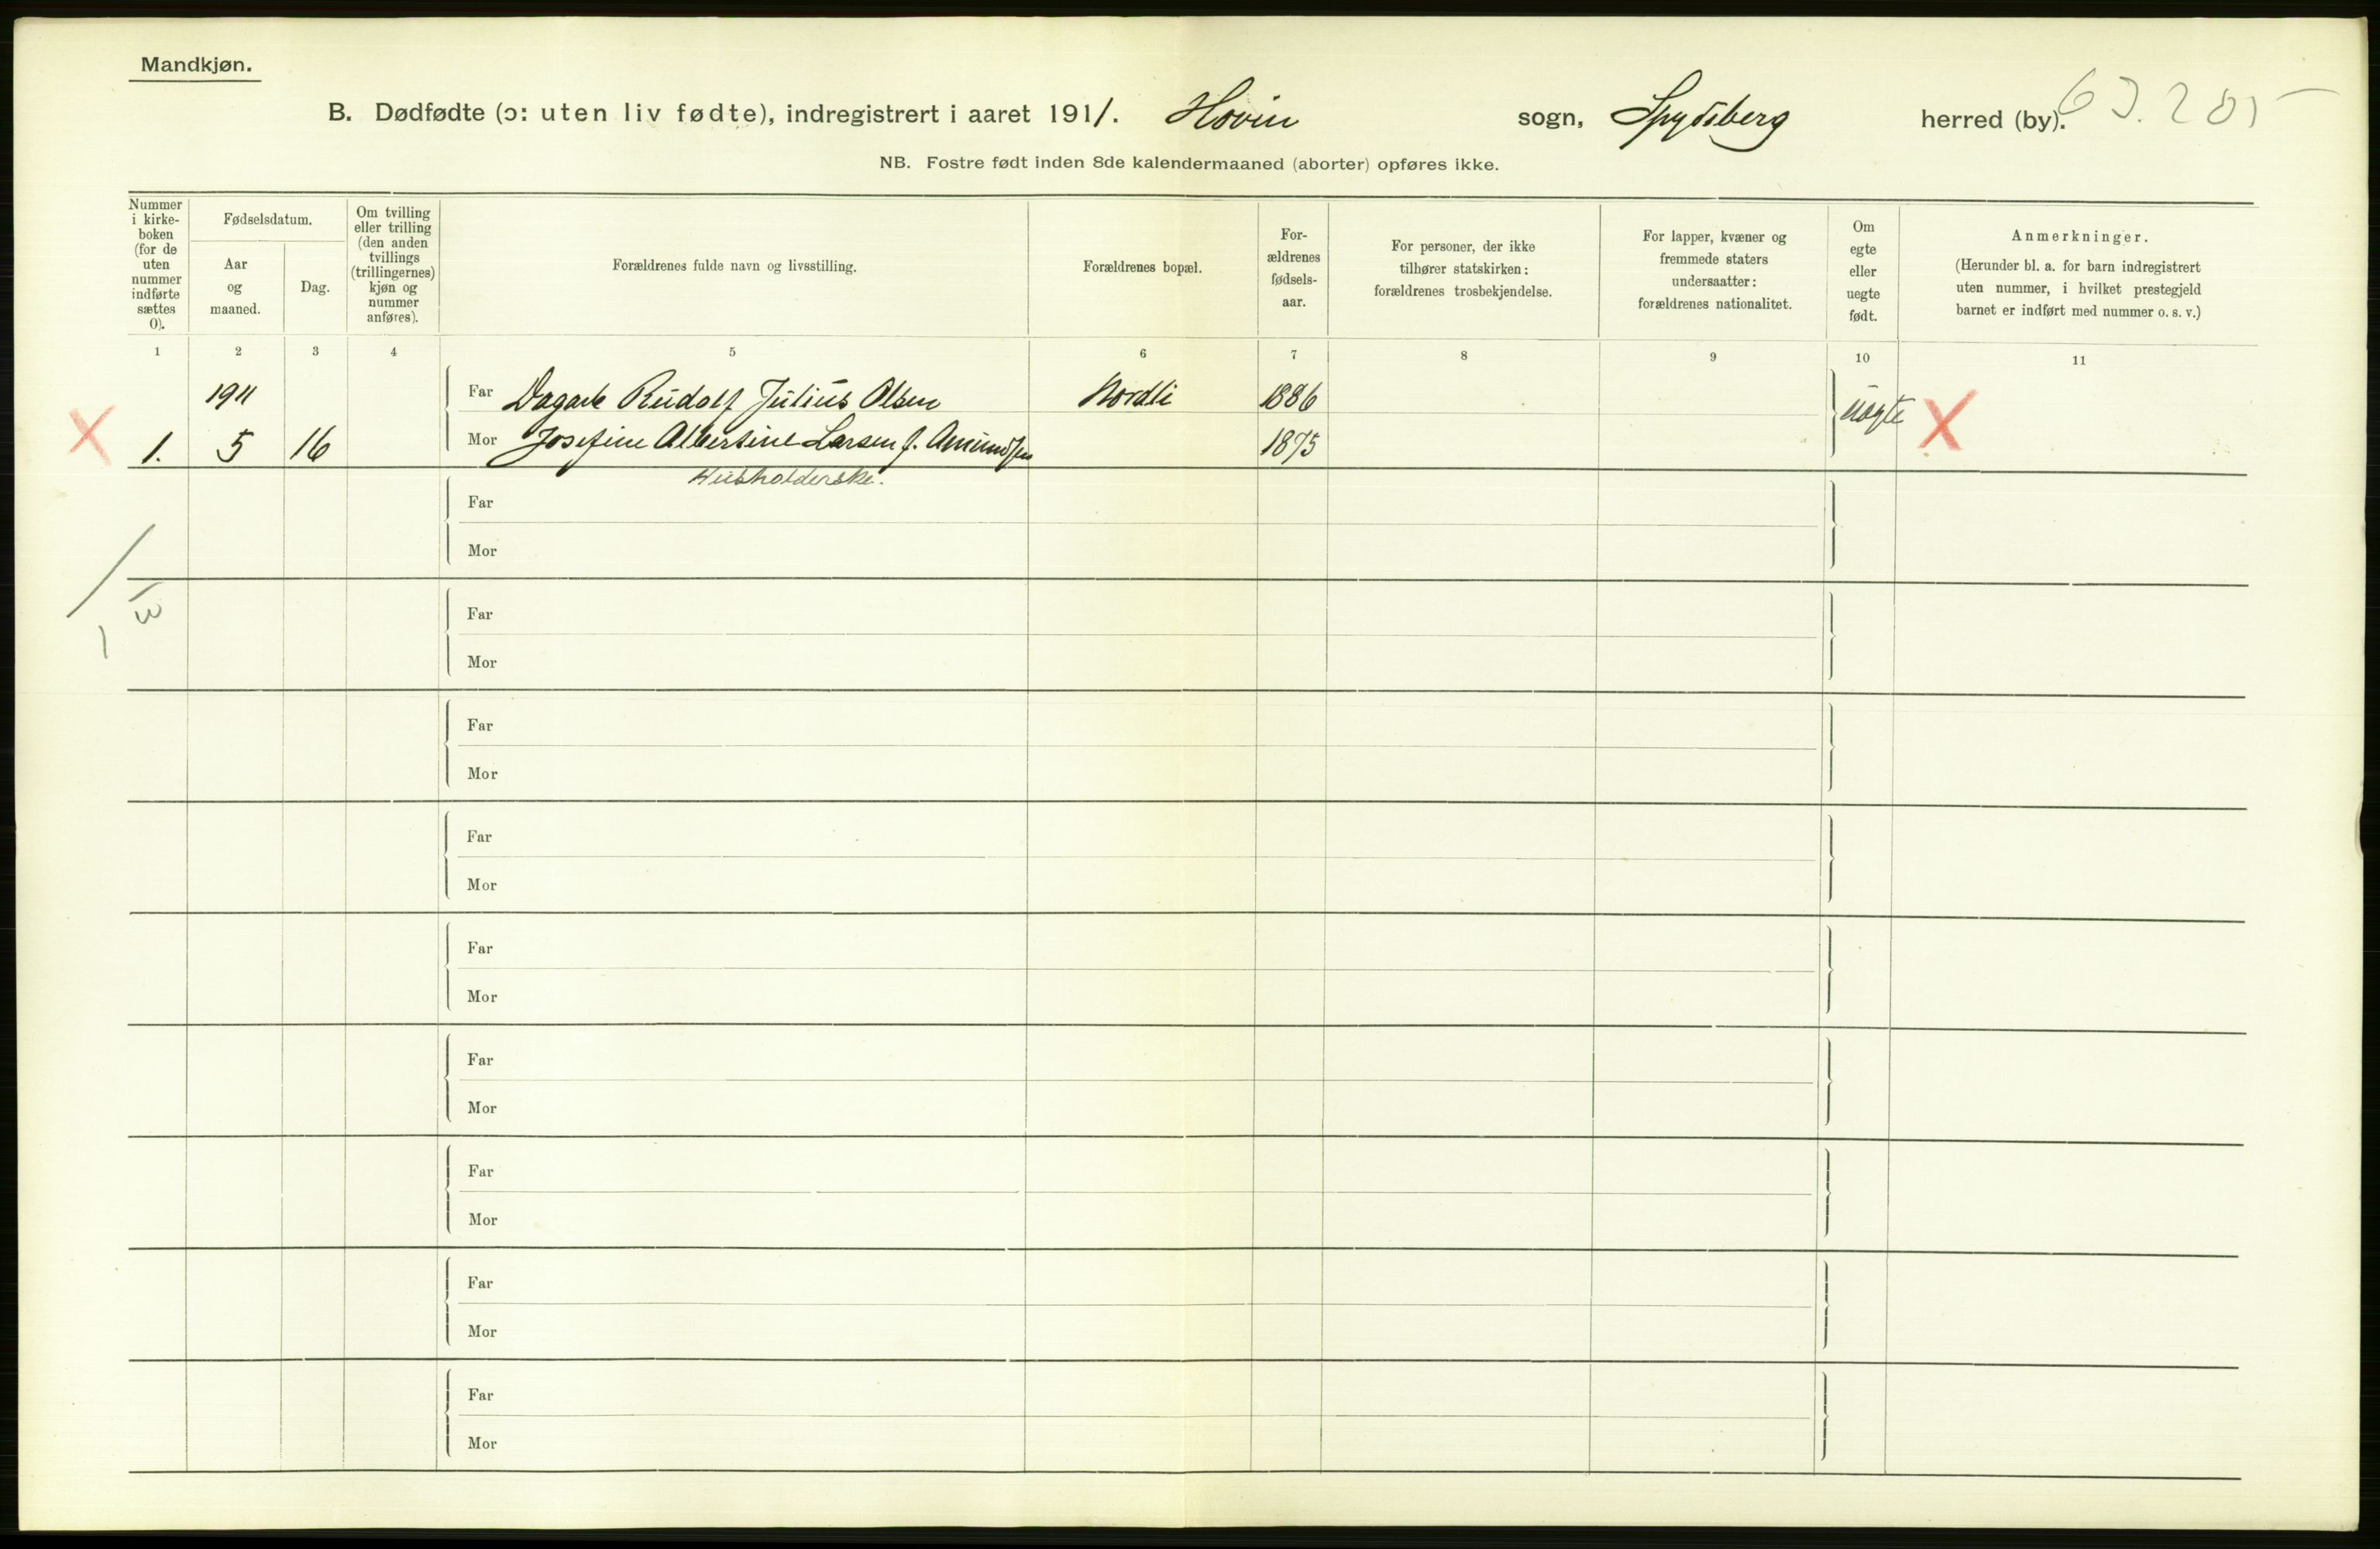 Mandkjøn.
B. Dødfødte (ɔ: uten liv fødte), indregistrert i aaret 1911. Hovin sogn, Spydeberg herred (by).
NB. Fostre født inden 8de kalendermaaned (aborter) opføres ikke.
Nummer i kirke-boken (for de uten nummer indførte sættes 0).
Fødselsdatum.
Aar og maaned.
Dag.
Om tvilling eller trilling (den anden tvillings (trillingernes) kjøn og nummer anføres).
Forældrenes fulde navn og livsstilling.
Forældrenes bopæl.
For-ældrenes fødsels-aar.
For personer, der ikke tilhører statskirken: forældrenes trosbekjendelse.
For lapper, kvæner og fremmede staters undersaatter: forældrenes nationalitet.
Om egte eller uegte født.
Anmerkninger.
(Herunder bl. a. for barn indregistrert uten nummer, i hvilket prestegjeld barnet er indført med nummer o. s. v.)
1 2 3 4 5 6 7 8 9 10 11
1911 Far Dagarb Rudolf Julius Olsen Nordli 1886 uegte X
X 1. 5 16 Mor Josefine Albertine Larsen f. Amundsen 1875
Husholderske.
Far
Mor
Far
Mor
Far
Mor
Far
Mor
Far
Mor
Far
Mor
Far
Mor
Far
Mor
Far
Mor